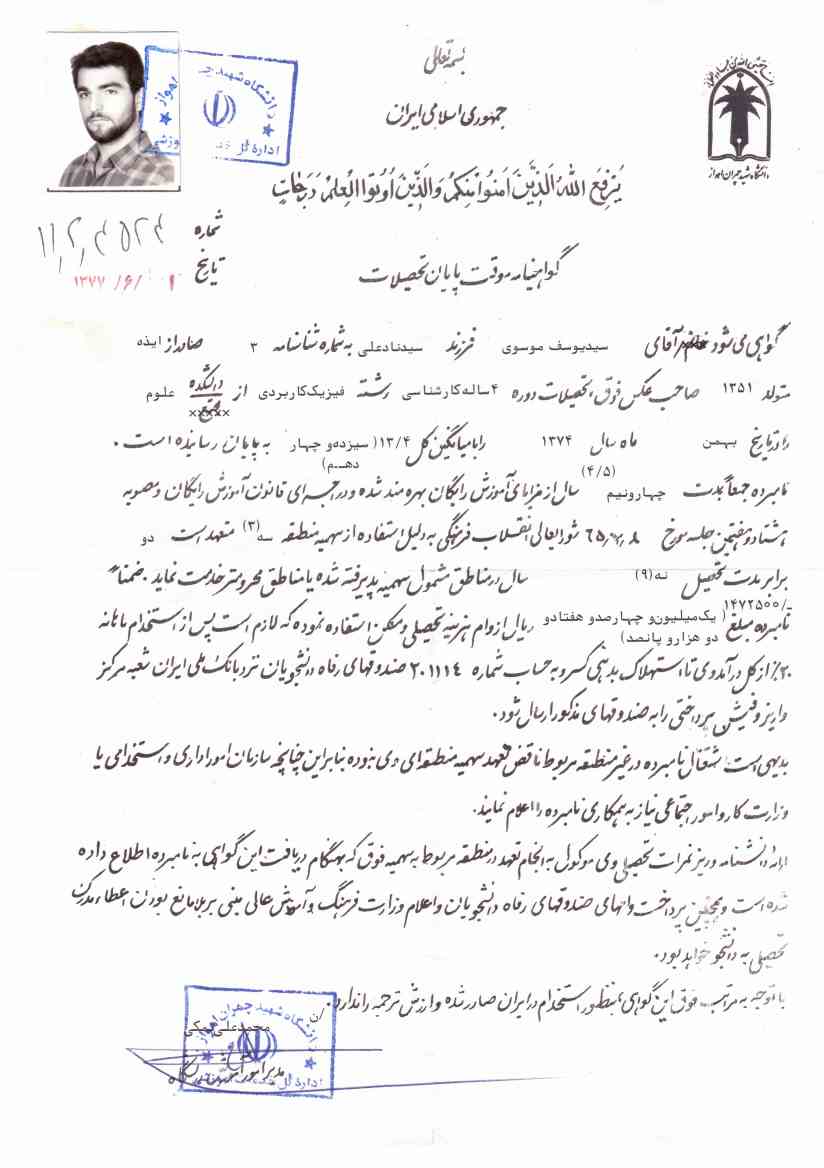 بسمه تعالی
جمهوری اسلامی ایران
دانشگاه شهید چمران اهواز
یَرْفَعِ اللهُ الَّذینَ اٰمَنُوا مِنکُمْ وَالَّذینَ اُوتُوا الْعِلْمَ دَرَجٰاتٍ
شماره ۱۱٫۲٫۴۵۲۴
تاریخ ۱۳۷۷/۶/
گواهینامه موقت پایان تحصیلات
گواهی می شود خانم/آقای سیدیوسف موسوی فرزند سیدنادعلی به شماره شناسنامه ۳ صادر از ایذه
متولد ۱۳۵۱ صاحب عکس فوق، تحصیلات دوره ۴ساله کارشناسی رشته فیزیک کاربردی از دانشکده علوم
xxxxx
را در تاریخ بهمن ماه سال ۱۳۷۴ را با میانگین کل ۱۳/۴( سیزده و چهار به پایان رسانیده است .
دهـم)
(۴/۵)
نامبرده جمعاً بمدت چهارونیم سال از مزایای آموزش رایگان بهره مند شده و در اجرای قانون آموزش رایگان و مصوبه
هشتاد و هفتمین جلسه مورخ ۶۵٫۷٫۸ شورایعالی انقلاب فرهنگی به دلیل استفاده از سهمیه منطقه سه(۳) متعهد است دو
برابر مدت تحصیل نه(۹) سال در مناطق مشمول سهمیه پذیرفته شده یا مناطق محرومتر خدمت نماید . ضمناً
۱۴۷۲۵۰۰/ـ
نامبرده مبلغ ( یک میلیون و چهارصدو هفتادو ریال از وام هزینه تحصیلی و مسکن استفاده نموده که لازم است پس از استخدام ماهانه
دو هزارو پانصد)
۲۰٪ از کل درآمد وی تا استهلاک بدهی کسر و به حساب شماره ۲۰۱۱۱۴ صندوقهای رفاه دانشجویان نزد بانک ملی ایران شعبه مرکز
واریز و فیش پرداختی را به صندوقهای مذکور ارسال شود.
بدیهی است اشتغال نامبرده در غیر منطقه مربوط ناقض تعهد سهمیه منطقه ای وی نبوده بنابراین چنانچه سازمان امور اداری و استخدامی یا
وزارت کار و امور اجتماعی نیاز به همکاری نامبرده را اعلام نمایند.
ارائه دانشنامه و ریز نمرات تحصیلی وی موکول به انجام تعهد در منطقه مربوط به سهمیه فوق که بهنگام دریافت این گواهی به نامبرده اطلاع داده
شده است و همچنین پرداخت وامهای صندوقهای رفاه دانشجویان و اعلام وزارت فرهنگ و آموزش عالی مبنی بر بلامانع بودن اعطاء مدرک
تحصیلی به دانشجو خواهد بود.
با توجه به مراتب فوق این گواهی بمنظور استخدام در ایران صادر شده و ارزش ترجمه را ندارد.
دانشگاه شهید چمران اهواز
محمدعلی
مدیر امور آموزشی دانشگاه